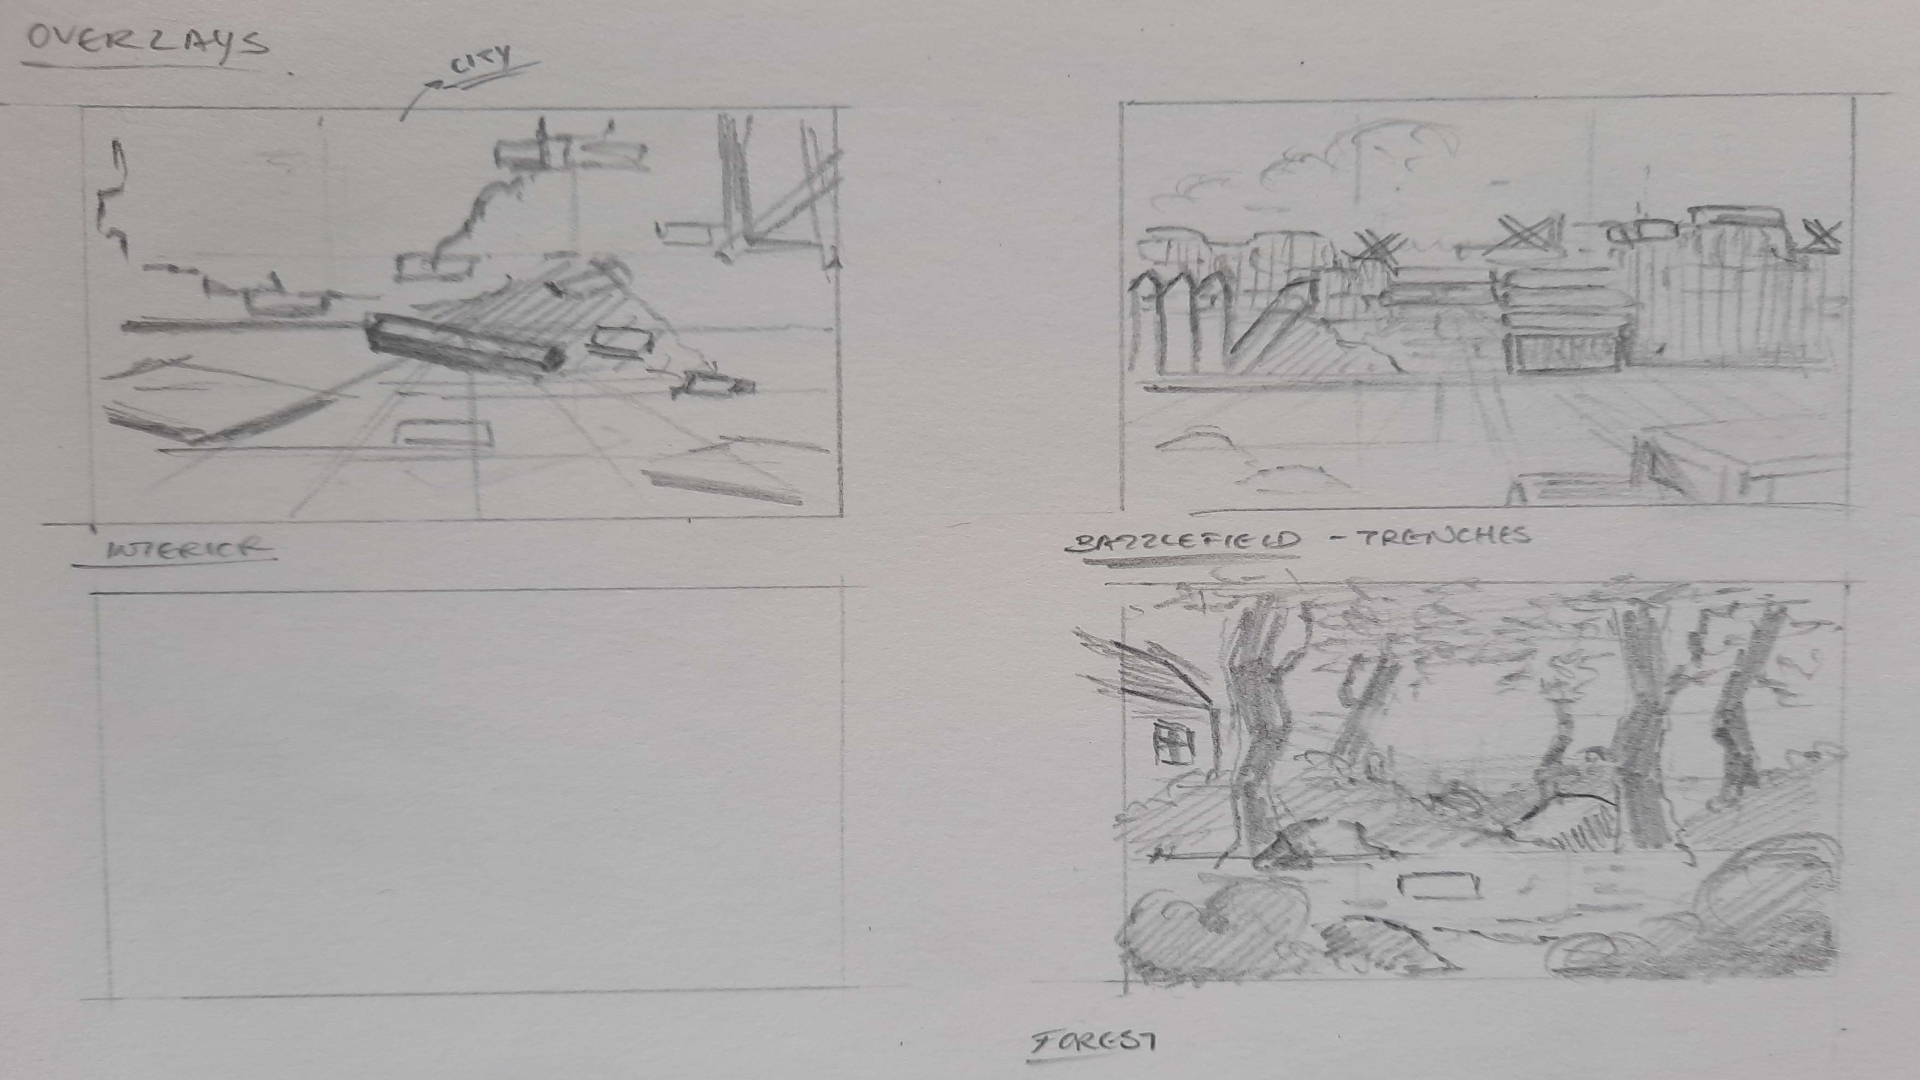 OVERLAYS
CITY
INTERIOR
BATTLEFIELD - TRENCHES
FOREST